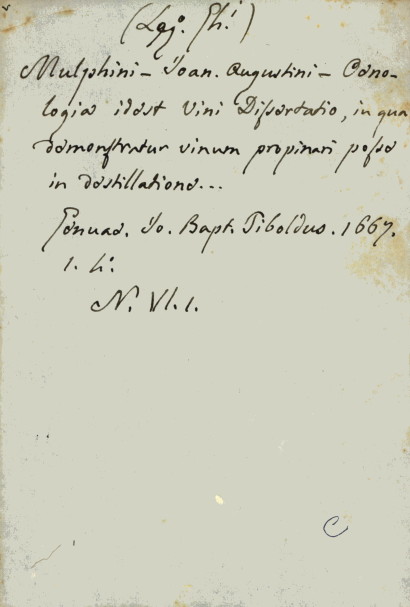 (Leg. Eh.)
Mulphini - Ioan. Augustini - Oeno-
logia idest Vini Dissertatio, in qua
demonstratur vinum propinari posse
in destillatione...
Genuae. Io. Bapt. Tiboldus. 1667.
N. VI. 1.
C